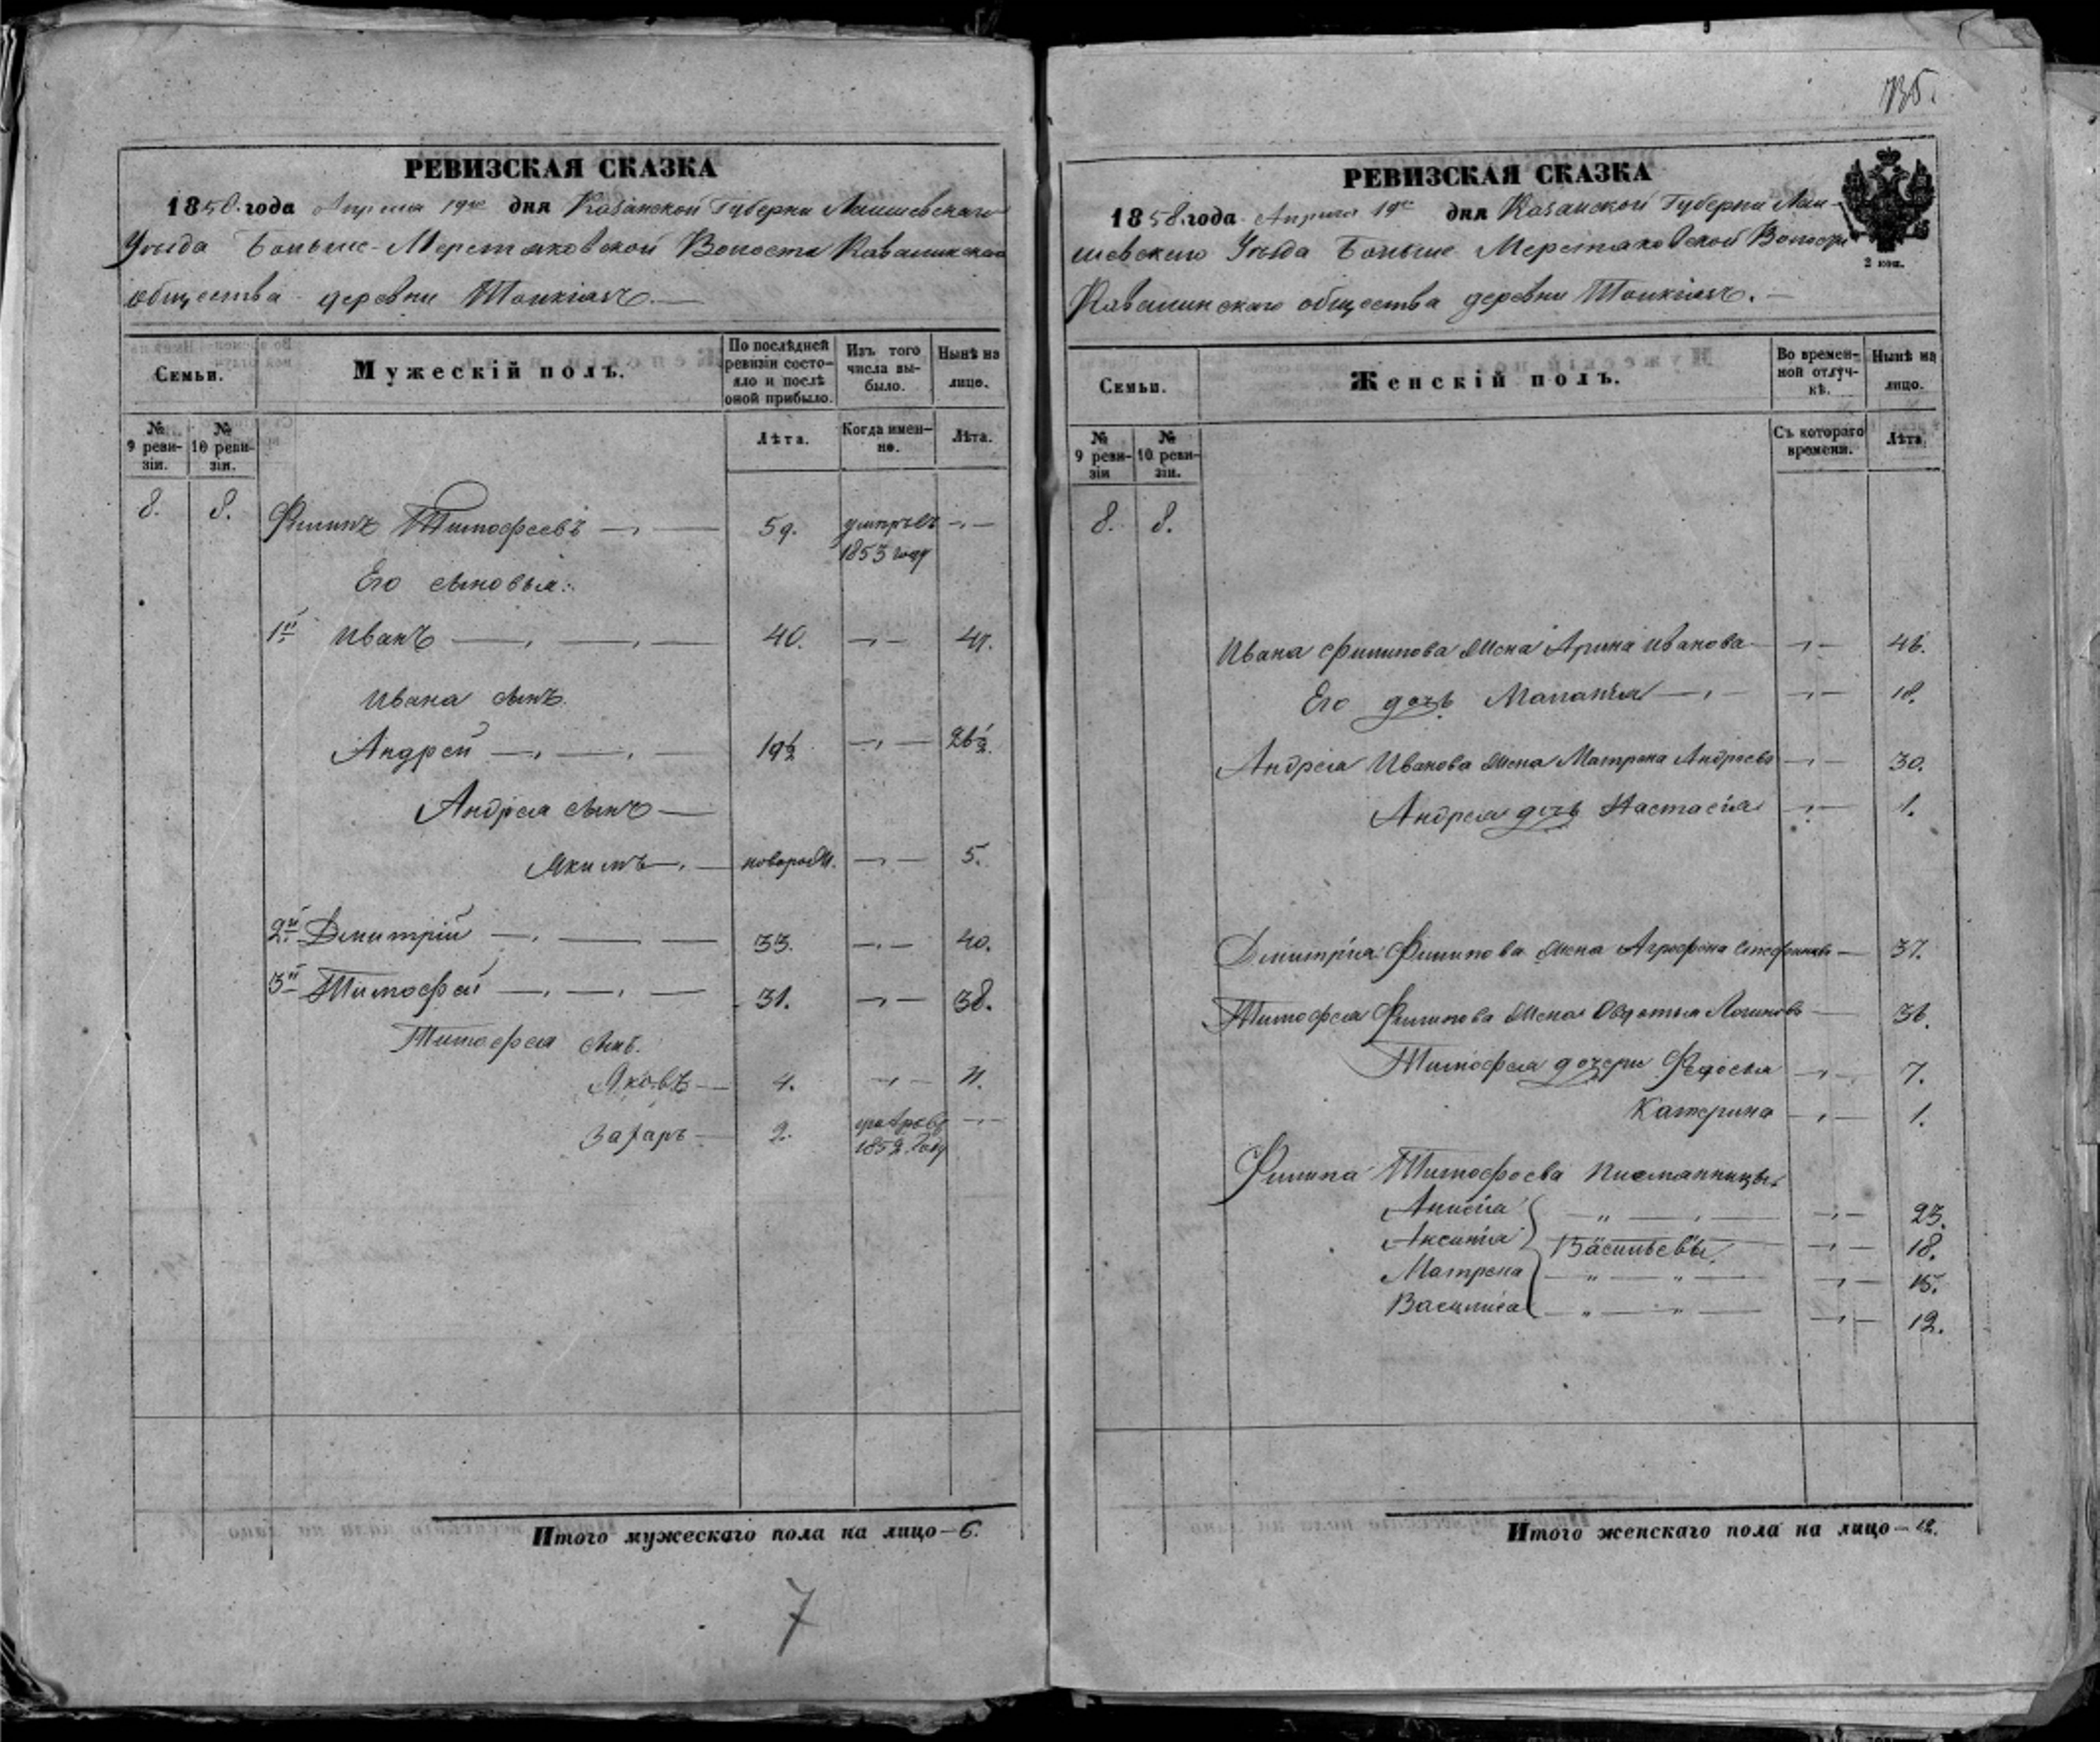 РЕВИЗСКАЯ СКАЗКА
1858. года Апреля 19го дня Казанской Губерни Лаишевскаго
Уѣзда Больше-Мереtяковской Волости Кавалинскаго
общества деревни
Семьи.
Мужескій полъ.
По послѣдней ревизіи состояло и послѣ оной прибыло.
Изъ того числа выбыло.
Нынѣ на лицо.
№ 9 ревизіи.
№ 10 ревизіи.
Лѣта.
Когда именно.
Лѣта.
8. 8. Филипъ Тимофеевъ 59. умръ въ
1853 году
Его сыновья:
1й Иванъ 40. 47.
Ивана сынъ
Андрей 19½ 26½.
Андрея сынъ
Якимъ новорож. 5.
2й Дмитрій 33. 40.
3й Тимофей 31. 38.
Тимофея сын.
Яковъ 4. 11.
Захаръ 2.
1852 году
Итого мужескаго пола на лицо—6.
7
135.
РЕВИЗСКАЯ СКАЗКА
2 коп.
1858. года Апреля 19го дня Казанской Губерни Лаи-
шевскаго Уѣзда Больше Меретяковской Волости
Кавалинскаго общества деревни
Семьи.
Женскій полъ.
Во временной отлучкѣ.
Нынѣ на лицо.
№ 9 ревизіи
№ 10 ревизіи.
Съ котораго времени.
Лѣта
8. 8.
Ивана Филипова жена Арина Иванова 46.
Его дочь Маланья 18.
Андрея Иванова жена Матрена Андреева 30.
Андрея дочь Настасія 1.
Дмитрія Филипова жена Агрофена 37.
Тимофея Филипова жена Овдотья Логинова 36.
Тимофея дочери Федосья 7.
Катерина 1.
Филипа Тимофеева племянницы
Анисія 23.
Аксинія Васильевы 18.
Матрена 15.
Василиса 12.
Итого женскаго пола на лицо—12.